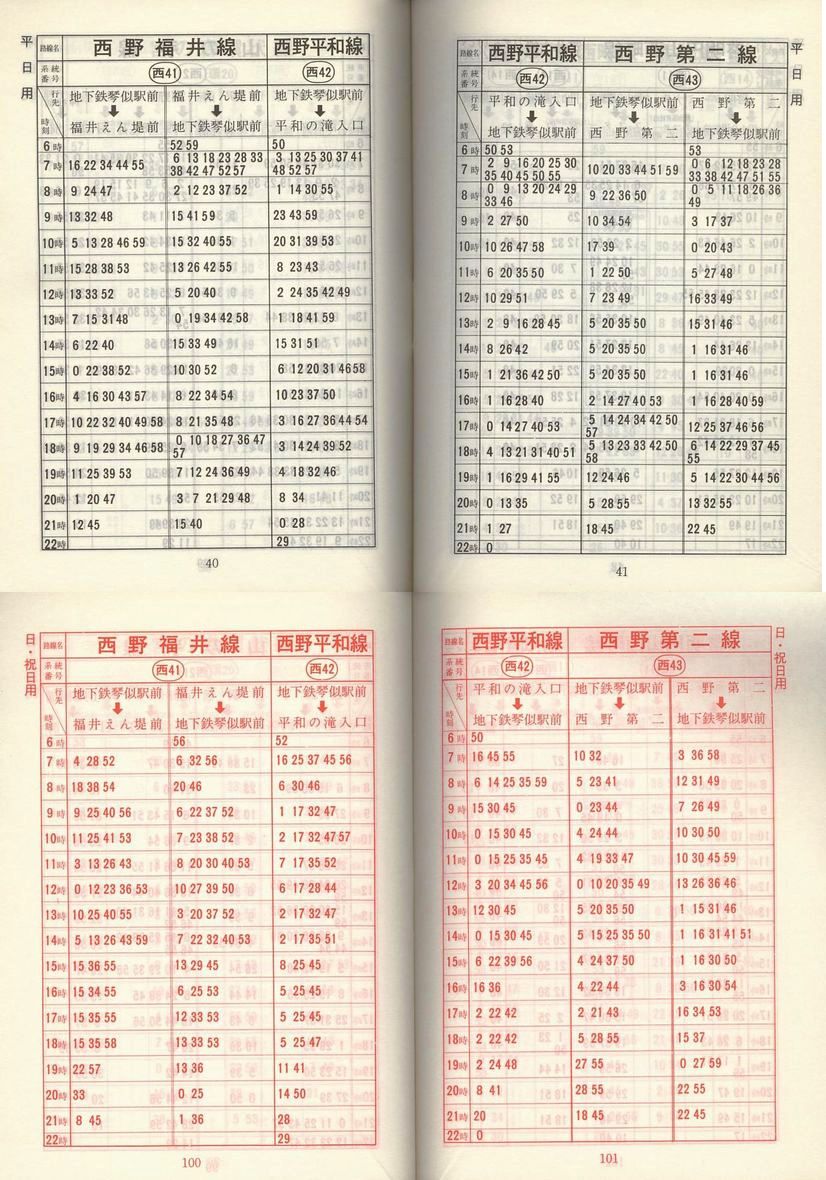 平日用
路線名 西野福井線 西野平和線
系統番号 西41 西42
行先 時刻 地下鉄琴似駅前 福井えん堤前 地下鉄琴似駅前
福井えん堤前 地下鉄琴似駅前 平和の滝入口
6時 52 59 50
7時 16 22 34 44 55 6 13 18 23 28 33 3 13 25 30 37 41
38 42 47 52 57 48 52 57
8時 9 24 47 2 12 23 37 52 1 14 30 55
9時 13 32 48 15 41 59 23 43 59
10時 5 13 28 46 59 15 32 40 55 20 31 39 53
11時 15 28 38 53 13 26 42 55 8 23 43
12時 13 33 52 5 20 40 2 24 35 42 49
13時 7 15 31 48 0 19 34 42 58 1 18 41 59
14時 6 22 40 15 33 49 15 31 51
15時 0 22 38 52 10 30 52 6 12 20 31 46 58
16時 4 16 30 43 57 8 22 34 54 10 23 37 50
17時 10 22 32 40 49 58 8 21 35 48 3 16 27 36 44 54
18時 9 19 29 34 46 58 0 10 18 27 36 47 3 14 24 39 52
57
19時 11 25 39 53 7 12 24 36 49 4 18 32 46
20時 1 20 47 3 7 21 29 48 8 34
21時 12 45 15 40 0 28
22時 29
40
平日用
路線名 西野平和線 西野第二線
系統番号 西42 西43
行先 時刻 平和の滝入口 地下鉄琴似駅前 西野第二
地下鉄琴似駅前 西野第二 地下鉄琴似駅前
6時 50 53 53
7時 2 9 16 20 25 30 10 20 33 44 51 59 0 6 12 18 23 28
35 40 45 50 55 33 38 42 47 51 55
8時 0 9 13 20 24 29 9 22 36 50 0 5 11 18 26 36
33 46 49
9時 2 27 50 10 34 54 3 17 37
10時 10 26 47 58 17 39 0 20 43
11時 6 20 35 50 1 22 50 5 27 48
12時 10 29 51 7 23 49 16 33 49
13時 2 9 16 28 45 5 20 35 50 15 31 46
14時 8 26 42 5 20 35 50 1 16 31 46
15時 1 21 36 42 50 5 20 35 50 1 16 31 46
16時 1 16 28 40 2 14 27 40 53 1 16 28 40 59
17時 0 14 27 40 53 5 14 24 34 42 50 12 25 37 46 56
57
18時 4 13 21 31 40 51 5 13 23 33 42 50 6 14 22 29 37 45
58 55
19時 1 16 29 41 55 12 24 46 5 14 22 30 44 56
20時 0 13 35 5 28 55 13 32 55
21時 1 27 18 45 22 45
22時 0
41
日・祝日用
路線名 西野福井線 西野平和線
系統番号 西41 西42
行先 時刻 地下鉄琴似駅前 福井えん堤前 地下鉄琴似駅前
福井えん堤前 地下鉄琴似駅前 平和の滝入口
6時 56 52
7時 4 28 52 6 32 56 16 25 37 45 56
8時 18 38 54 20 46 6 30 46
9時 9 25 40 56 6 22 37 52 1 17 32 47
10時 11 25 41 53 7 23 38 52 2 17 32 47 57
11時 3 13 26 43 8 20 30 40 53 7 17 35 52
12時 0 12 23 36 53 10 27 39 50 6 17 28 44
13時 10 25 40 55 3 20 37 52 2 17 32 47
14時 5 13 26 43 59 7 22 32 40 53 2 17 35 51
15時 15 36 55 13 29 45 8 25 45
16時 15 34 55 6 25 53 5 25 45
17時 15 35 55 12 33 53 5 25 45
18時 15 35 58 13 33 53 5 25 47
19時 22 57 13 36 11 41
20時 33 0 25 14 50
21時 8 45 1 36 28
22時 29
100
日・祝日用
路線名 西野平和線 西野第二線
系統番号 西42 西43
行先 時刻 平和の滝入口 地下鉄琴似駅前 西野第二
地下鉄琴似駅前 西野第二 地下鉄琴似駅前
6時 50
7時 16 45 55 10 32 3 36 58
8時 6 14 25 35 59 5 23 41 12 31 49
9時 15 30 45 0 23 44 7 26 49
10時 0 15 30 45 4 24 44 10 30 50
11時 0 15 25 35 45 4 19 33 47 10 30 45 59
12時 3 20 34 45 56 0 10 20 35 49 13 26 36 46
13時 12 30 45 5 20 35 50 1 15 31 46
14時 0 15 30 45 5 15 25 35 50 1 16 31 41 51
15時 6 22 39 56 4 24 37 50 1 16 30 50
16時 16 36 4 22 44 3 16 30 54
17時 2 22 42 2 21 43 16 34 53
18時 2 22 42 5 28 55 15 37
19時 2 24 48 27 55 0 27 59
20時 8 41 28 55 22 55
21時 20 18 45 22 45
22時 0
101